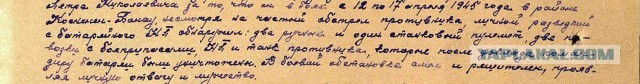 Петра Николаевича за то, что он в боях с 12 по 17 апреля 1945 года в районе
несмотря на частый обстрел противника, личной разведкой
с батарейного НП обнаружил: два ручных и один станковый пулемёт, две по-
возки с боеприпасами, НП и танк противника, которые после
диру батареи были уничтожены. В боевой обстановке смел и решителен, прояв-
ляя личную отвагу и мужество.
YAPLAKAL.COM